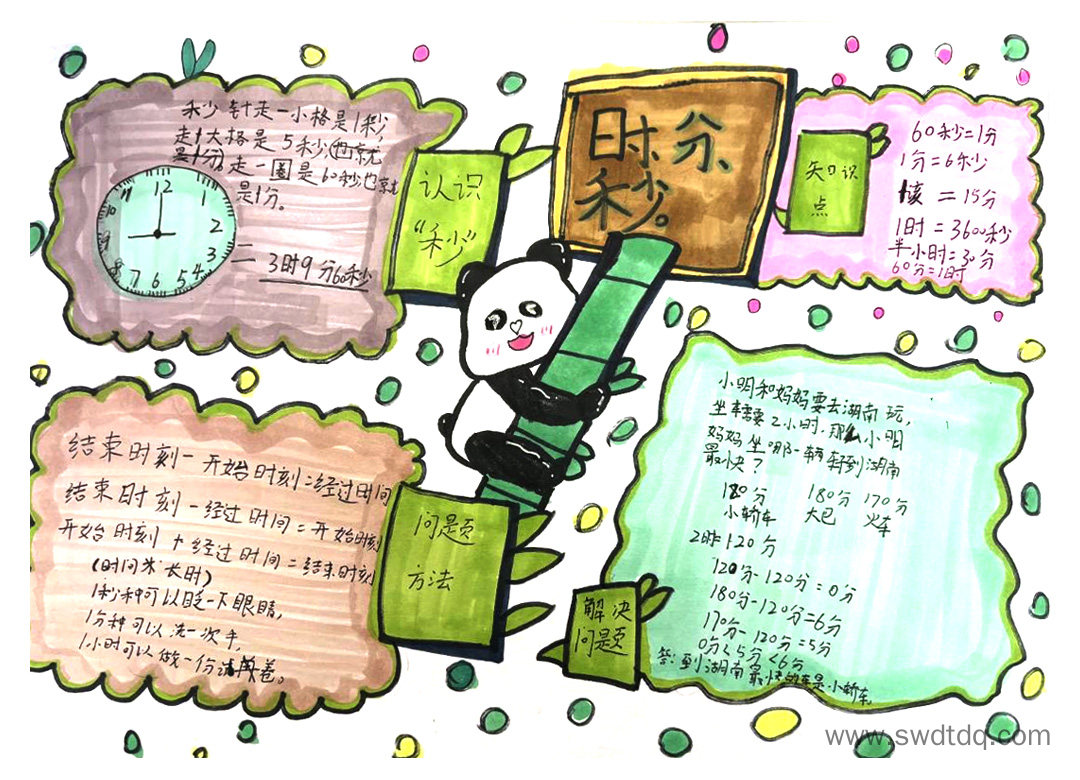 时、分、
秒。
认识
“秒”
秒针走一小格是1秒,
走1大格是5秒,也就
是1分,走一圈是60秒,也就
是1分。
12
1
2
3
4
5
6
7
8
9
10
3时9分60秒
知识
点
60秒=1分
1分=6秒
1刻=15分
1时=3600秒
半小时=30分
60分=1时
问题
方法
结束时刻-开始时刻=经过时间
结束时刻-经过时间=开始时刻
开始时刻+经过时间=结束时刻
(时间 长时)
1秒种可以眨一下眼睛,
1分种可以洗一次手,
1小时可以做一份 卷。
解决
问题
小明和妈妈要去湖南玩,
坐车需要2小时,那么小明
妈妈坐哪一辆 到湖南
最快?
180分 170分
小轿车 大巴 火车
2时=120分
120分-120分=0分
180分-120分=6分
170分-120分=5分
0分<5分<6分
答:到湖南最快的车是小轿车
www.swdtdq.com